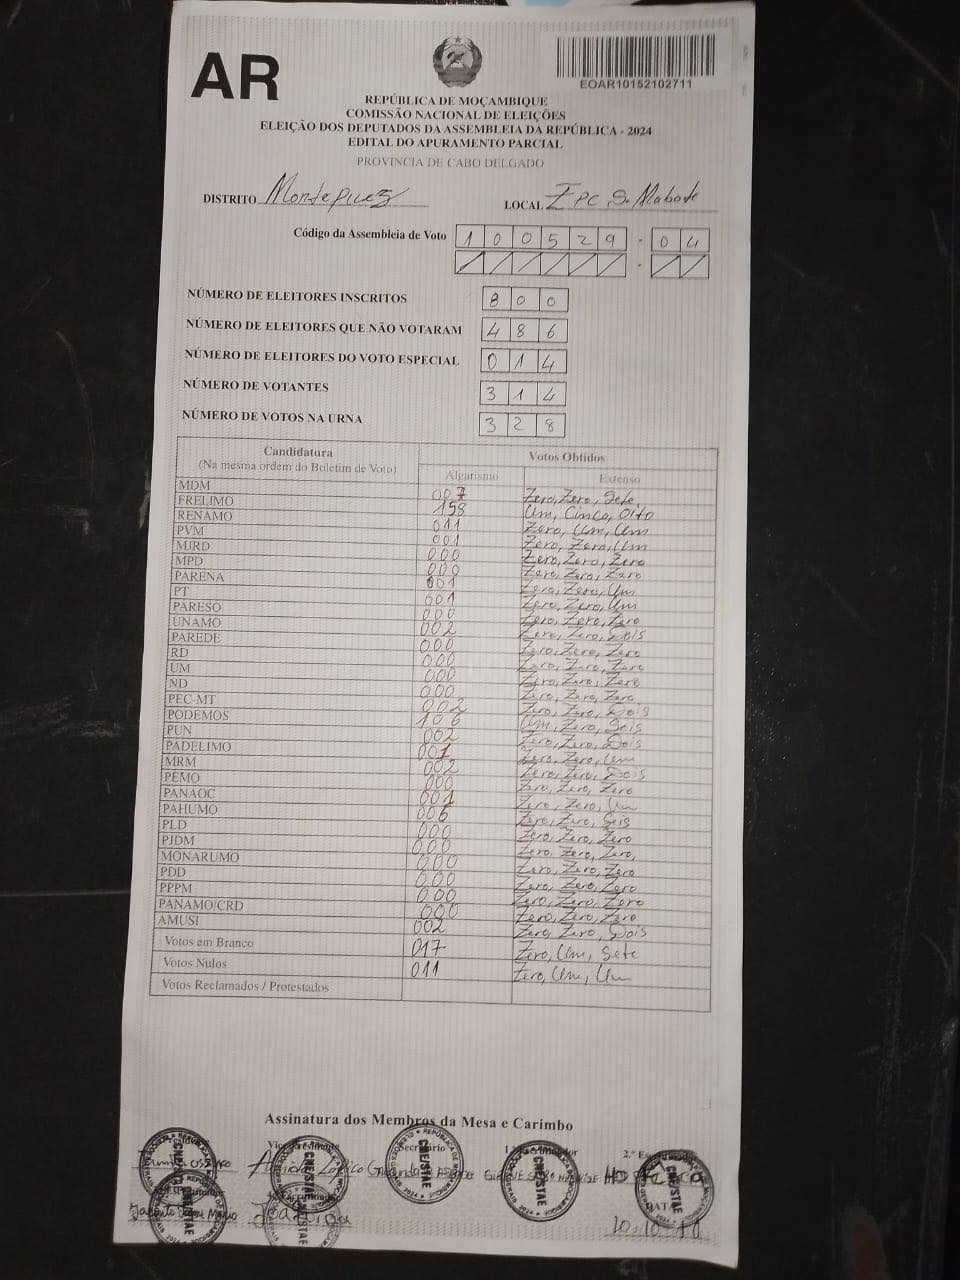 AR
EOAR10152102711
REPÚBLICA DE MOÇAMBIQUE
COMISSÃO NACIONAL DE ELEIÇÕES
ELEIÇÃO DOS DEPUTADOS DA ASSEMBLEIA DA REPÚBLICA - 2024
EDITAL DO APURAMENTO PARCIAL
PROVÍNCIA DE CABO DELGADO
DISTRITO Montepuez LOCAL EPC S. Mabote
Código da Assembleia de Voto 1 0 0 5 2 9 - 0 4
NÚMERO DE ELEITORES INSCRITOS 8 0 0
NÚMERO DE ELEITORES QUE NÃO VOTARAM 4 8 6
NÚMERO DE ELEITORES DO VOTO ESPECIAL 0 1 4
NÚMERO DE VOTANTES 3 1 4
NÚMERO DE VOTOS NA URNA 3 2 8
Candidatura Votos Obtidos
(Na mesma ordem do Boletim de Voto) Algarismo Extenso
MDM 007 Zero, Zero, Sete
FRELIMO 158 Um, Cinco, Oito
RENAMO 011 Zero, Um, Um
PVM 001 Zero, Zero, Um
MJRD 000 Zero, Zero, Zero
MPD 000 Zero, Zero, Zero
PARENA 001 Zero, Zero, Um
PT 001 Zero, Zero, Um
PARESO 000 Zero, Zero, Zero
UNAMO 002 Zero, Zero, Dois
PAREDE 000 Zero, Zero, Zero
RD 000 Zero, Zero, Zero
UM 000 Zero, Zero, Zero
ND 000 Zero, Zero, Zero
PEC-MT 002 Zero, Zero, Dois
PODEMOS 106 Um, Zero, Seis
PUN 002 Zero, Zero, Dois
PADELIMO 001 Zero, Zero, Um
MRM 002 Zero, Zero, Dois
PEMO 000 Zero, Zero, Zero
PANAOC 001 Zero, Zero, Um
PAHUMO 006 Zero, Zero, Seis
PLD 000 Zero, Zero, Zero
PJDM 000 Zero, Zero, Zero,
MONARUMO 000 Zero, Zero, Zero
PDD 000 Zero, Zero, Zero
PPPM 000 Zero, Zero, Zero
PANAMO/CRD 000 Zero, Zero, Zero
AMUSI 002 Zero, Zero, Dois
Votos em Branco 017 Zero, Um, Sete
Votos Nulos 011 Zero, Um, Um
Votos Reclamados / Protestados
Assinatura dos Membros da Mesa e Carimbo
Secretário
CNE/STAE
CNE/STAE
CNE/STAE
CNE/STAE
Joaquina